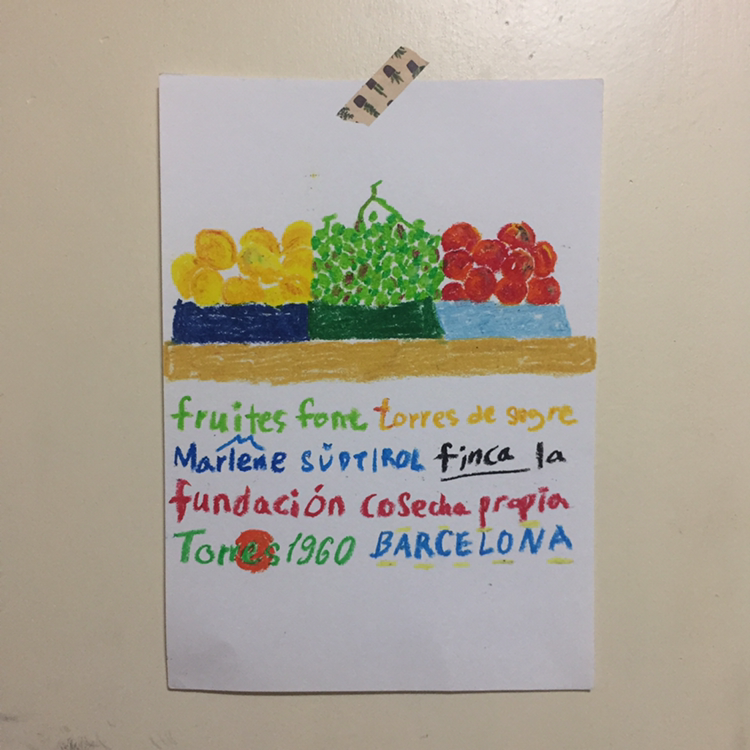 fruites font torres de segre
Marlene SÜDTIROL finca la
fundación cosecha propia
Torres 1960 BARCELONA